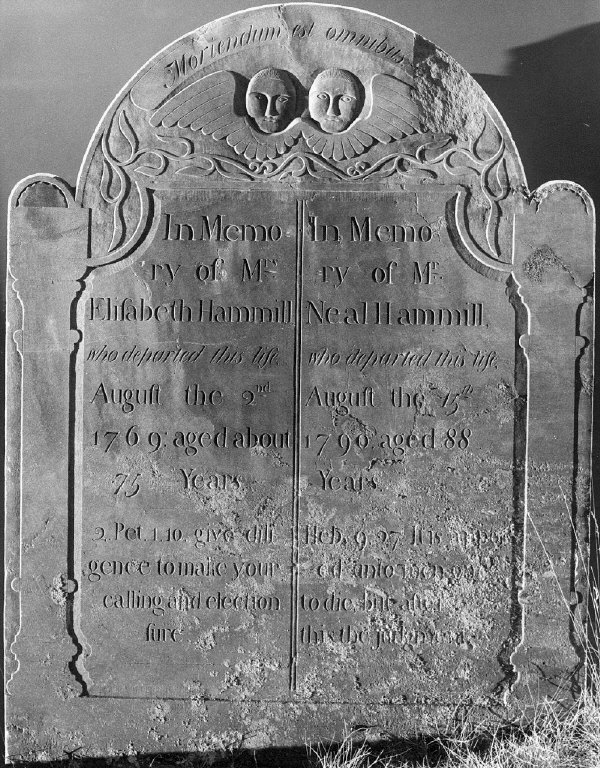 Moriendum est omnibus
In Memo
ry of Mrs.
Elisabeth Hammill
who departed this life.
Auguſt the 2nd
1769: aged about
75 Years
2. Pet. 1.10. give dili
gence to make your
calling and election
ſure
In Memo
ry of Mr.
Neal Hammill,
who departed this life.
Auguſt the 15th
1790. aged 88
Years
Heb. 9.27 It is appoi
ed unto men
to die, but after
this the judgment